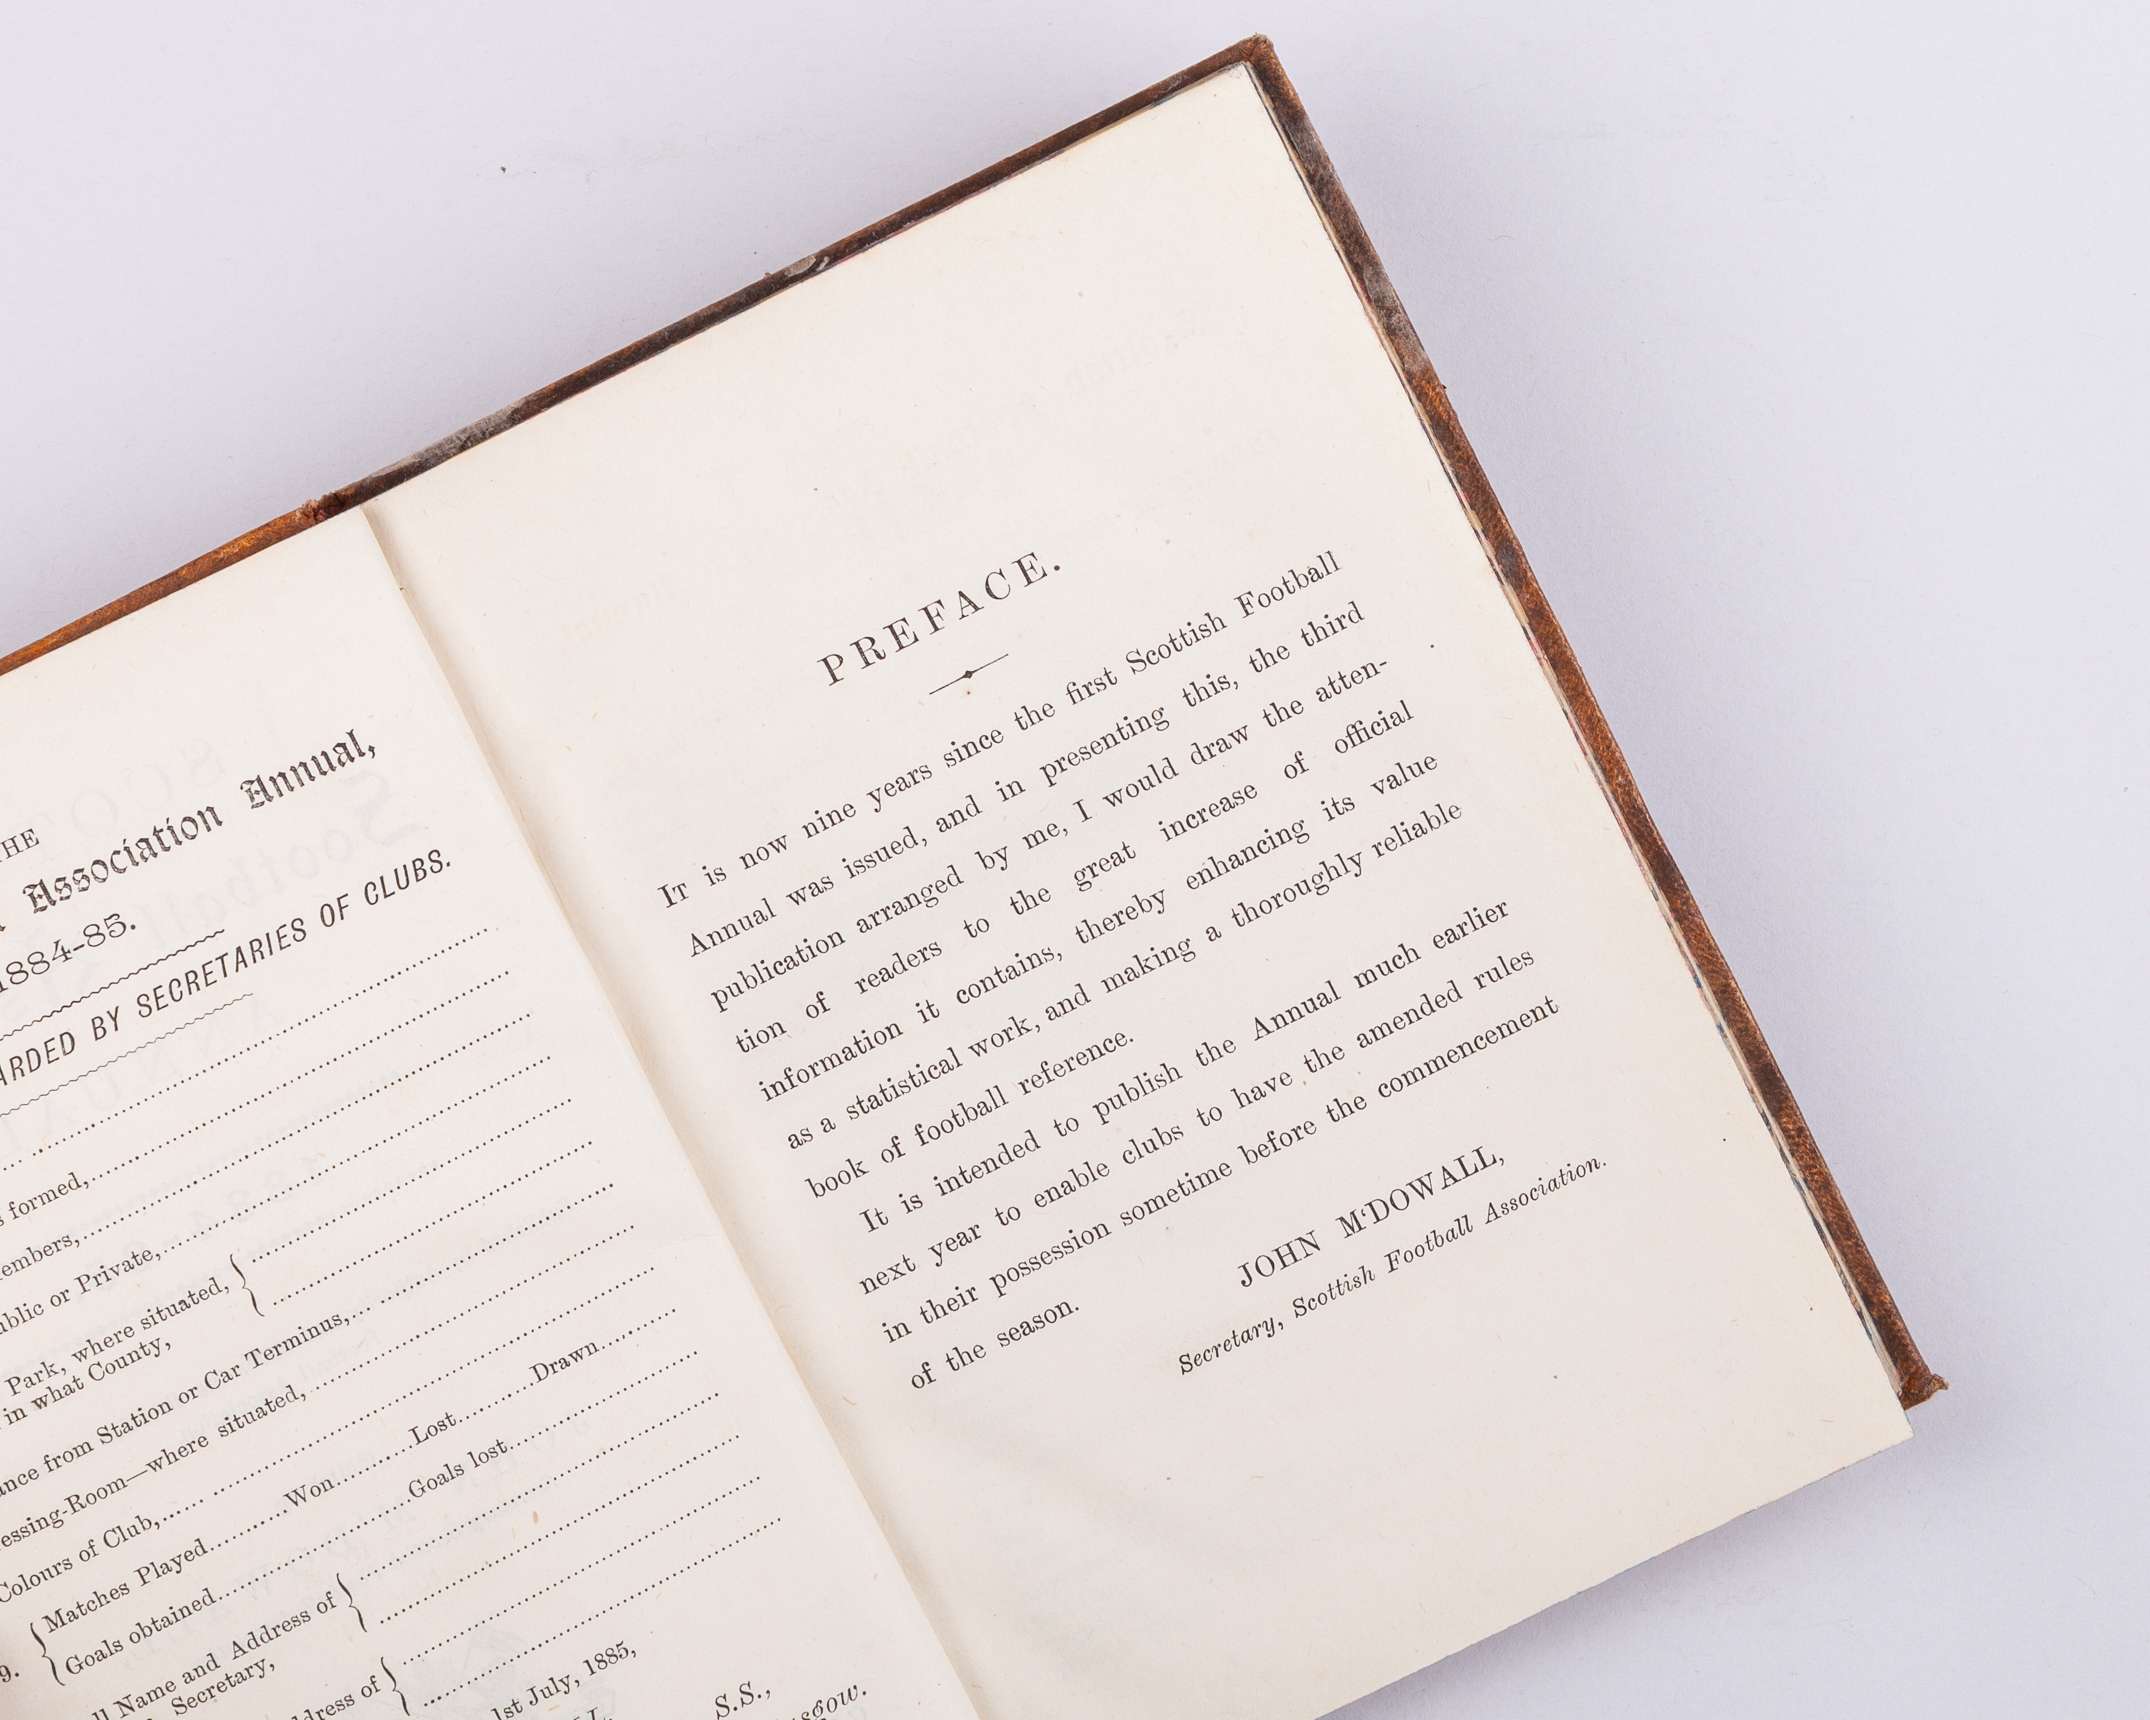 THE
Association Annual,
1884-85.
ARDED BY SECRETARIES OF CLUBS.
formed,
embers,
ublic or Private,
Park, where situated,
in what County,
ance from Station or Car Terminus,
essing-Room—where situated,
Colours of Club,
9. Matches Played Won Lost Drawn
Goals obtained Goals lost
ll Name and Address of
Secretary,
ddress of
1st July, 1885,
S.S.,
sgow.
PREFACE.
IT is now nine years since the first Scottish Football
Annual was issued, and in presenting this, the third
publication arranged by me, I would draw the atten-
tion of readers to the great increase of official
information it contains, thereby enhancing its value
as a statistical work, and making a thoroughly reliable
book of football reference.
It is intended to publish the Annual much earlier
next year to enable clubs to have the amended rules
in their possession sometime before the commencement
of the season.
JOHN M‘DOWALL,
Secretary, Scottish Football Association.